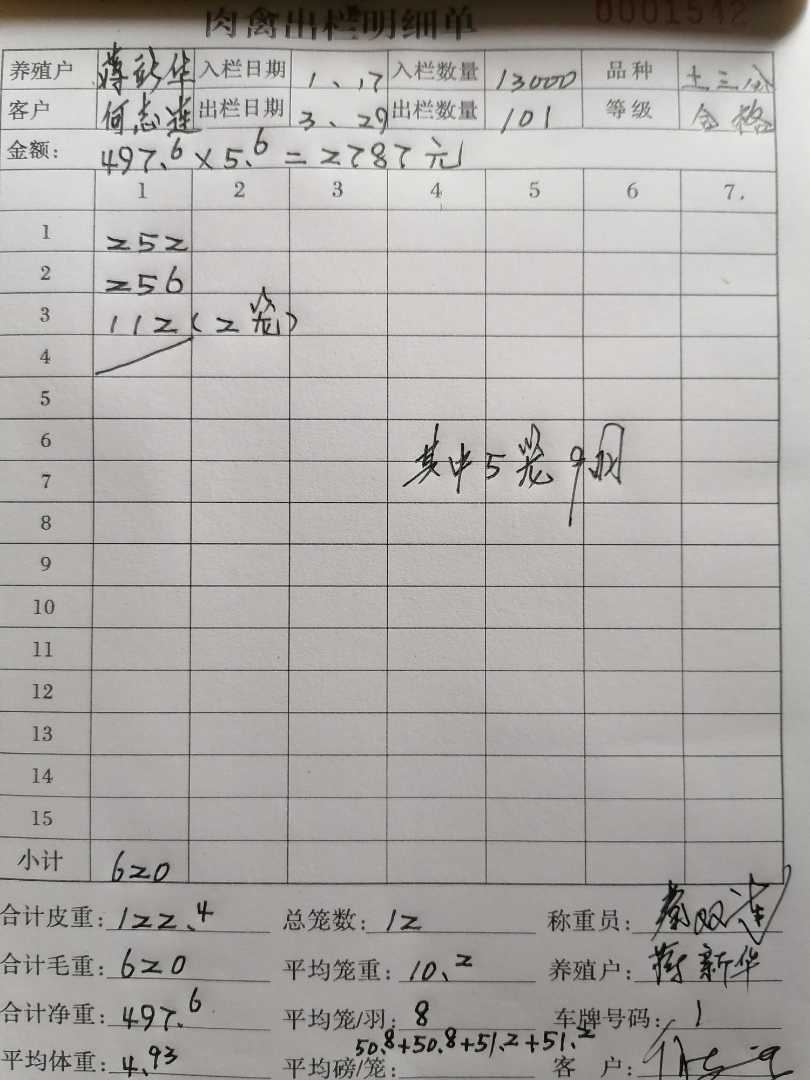 肉禽出栏明细单 0001542
养殖户 蒋新华 入栏日期 1、17 入栏数量 13000 品种 土三公
客户 何志连 出栏日期 3、29 出栏数量 101 等级 合格
金额: 497.6×5.6=2787元
1 2 3 4 5 6 7.
1 252
2 256
3 112(2笼)
4
5
6 其中5笼9羽
7
8
9
10
11
12
13
14
15
小计 620
合计皮重: 122.4 总笼数: 12 称重员: 秦双连
合计毛重: 620 平均笼重: 10.2 养殖户: 蒋新华
合计净重: 497.6 平均笼/羽: 8 车牌号码: 1
50.8+50.8+51.2+51.2
平均体重: 4.93 平均磅/笼: 客户: